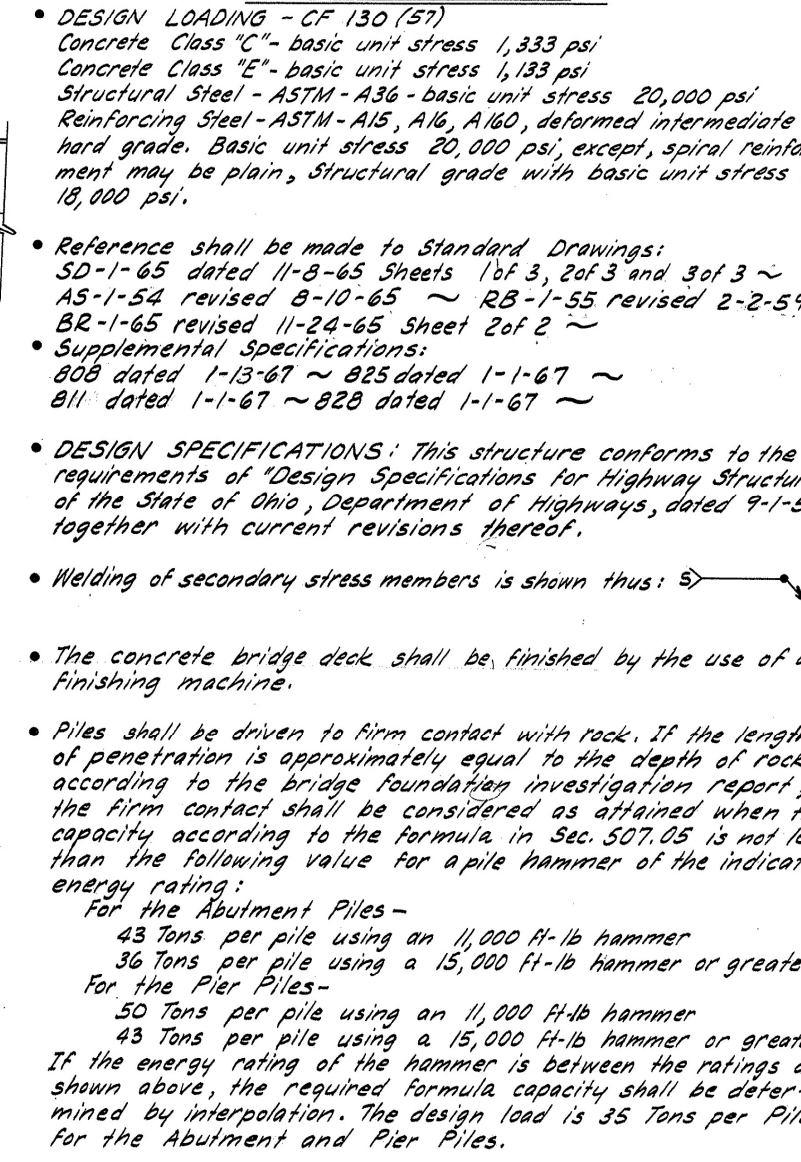 • DESIGN LOADING - CF 130 (57)
Concrete Class "C" - basic unit stress 1,333 psi
Concrete Class "E" - basic unit stress 1,133 psi
Structural Steel - ASTM - A36 - basic unit stress 20,000 psi
Reinforcing Steel - ASTM - A15, A16, A160, deformed intermediate
hard grade. Basic unit stress 20,000 psi, except, spiral reinfo
ment may be plain, Structural grade with basic unit stress
18,000 psi.
• Reference shall be made to Standard Drawings:
SD-1-65 dated 11-8-65 Sheets 1 of 3, 2 of 3 and 3 of 3 ~
AS-1-54 revised 8-10-65 ~ RB-1-55 revised 2-2-59
BR-1-65 revised 11-24-65 Sheet 2 of 2 ~
• Supplemental Specifications:
808 dated 1-13-67 ~ 825 dated 1-1-67 ~
811 dated 1-1-67 ~ 828 dated 1-1-67 ~
• DESIGN SPECIFICATIONS: This structure conforms to the
requirements of "Design Specifications for Highway Structur
of the State of Ohio, Department of Highways, dated 9-1-5
together with current revisions thereof.
• Welding of secondary stress members is shown thus: S
• The concrete bridge deck shall be finished by the use of a
finishing machine.
• Piles shall be driven to firm contact with rock. If the length
of penetration is approximately equal to the depth of rock
according to the bridge foundation investigation report,
the firm contact shall be considered as attained when t
capacity according to the formula in Sec. 507.05 is not le
than the following value for a pile hammer of the indicat
energy rating:
For the Abutment Piles -
43 Tons per pile using an 11,000 ft-lb hammer
36 Tons per pile using a 15,000 ft-lb hammer or greate
For the Pier Piles -
50 Tons per pile using an 11,000 ft-lb hammer
43 Tons per pile using a 15,000 ft-lb hammer or great
If the energy rating of the hammer is between the ratings a
shown above, the required formula capacity shall be deter-
mined by interpolation. The design load is 35 Tons per Pile
for the Abutment and Pier Piles.